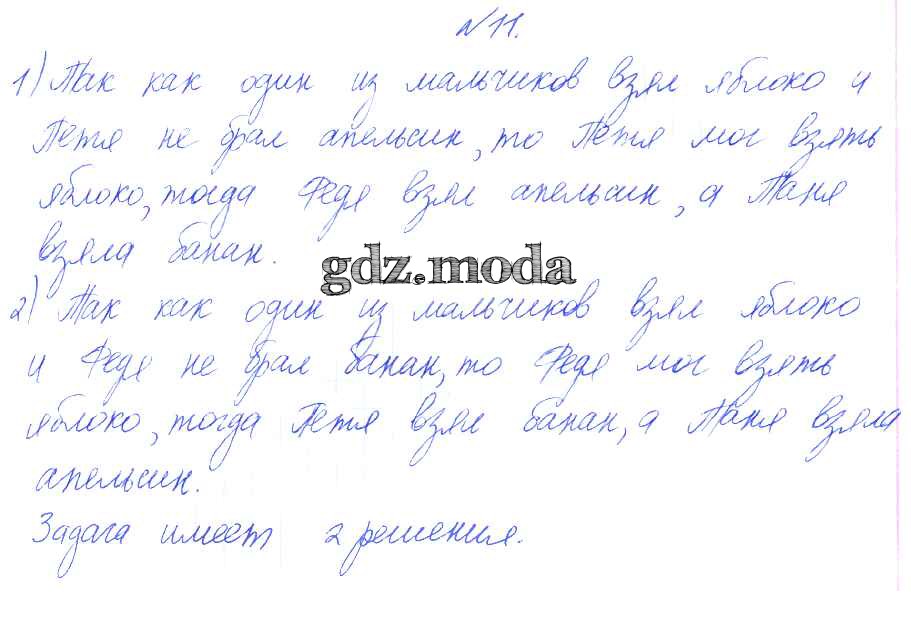 № 11.
1) Так как один из мальчиков взял яблоко и
Петя не брал апельсин, то Петя мог взять
яблоко, тогда Федя взял апельсин, а Таня
взяла банан.
gdz.moda
2) Так как один из мальчиков взял яблоко
и Федя не брал банан, то Федя мог взять
яблоко, тогда Петя взял банан, а Таня взяла
апельсин.
Задача имеет 2 решения.